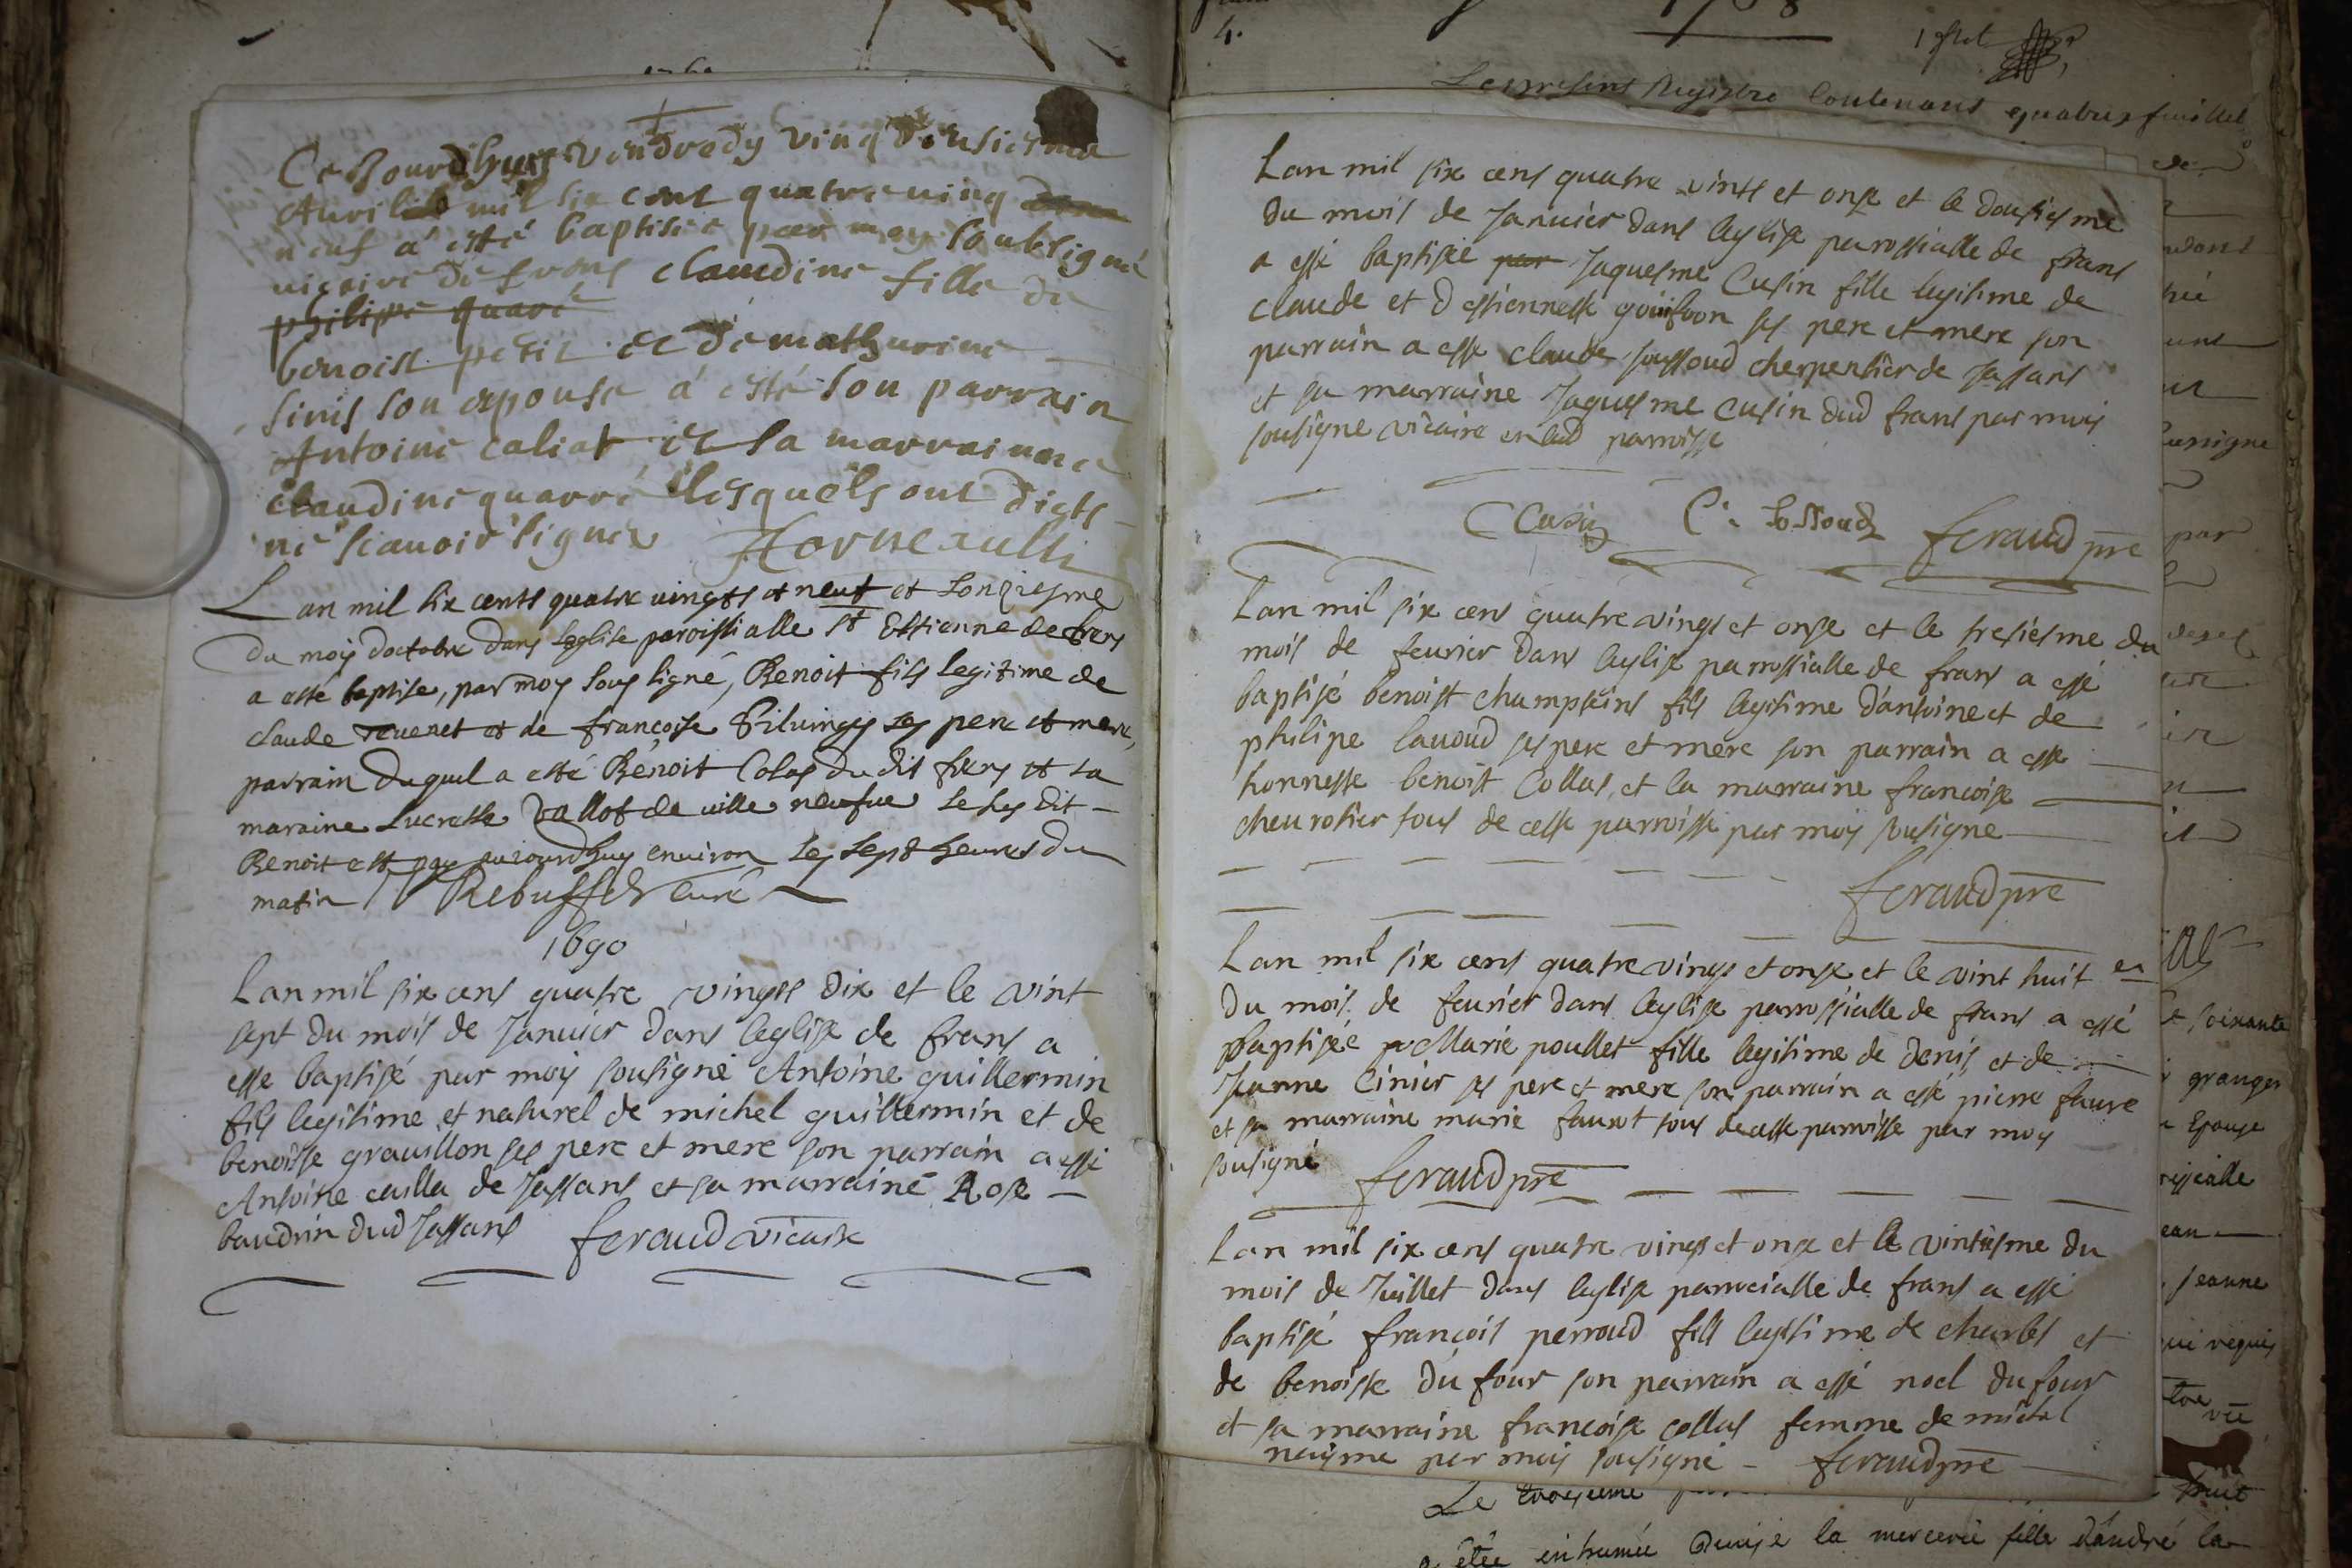 Ce Jourdhuy vendredy vingt deusiesme
Auril mil six cent quatre uing
neuf á esté baptisée par moy soubsigné
uicaire de frans claudine fille de
philipe quarré
benoist petit et de mathurine
sinis son epouse á esté son parrain
Antoine caliat et sa marrainne
claudine quarré lesquels ont dicts
ne scauoir signer
Lan mil six cents quatre uingts et neuf et Lonziesme
du moy doctobre dans Leglise paroissialle St Estienne de frens
a esté baptise, par moy sous signé, Benoit fils legitime de
claude reuenet et de françoise Giluingy ses pere et mere,
parrain duquel a esté Benoit Colas du dit frens et sa
maraine Lucresse Vallot de ville neufue le susdit
Benoit est nay aujourdhuy enuiron les sept heures du
matin Rebuffet Curé
1690
Lan mil six cens quatre vingts dix et le vint
sept du mois de Januier dans leglise de frans a
esté baptisé par moy sousigné Antoine guillermin
fils legitime et naturel de michel guillermin et de
benoiste grauillon ses pere et mere son parrain a esté
Antoine cailla de Jassans et sa marraine Rose
baudrin dud Jassans feraud vicaire
4.
Le present Registre Contenant quatres feuillet
Lan mil six cens quatre vints et onze et le dousiesme
du mois de Januier dans leglise parrossialle de frans
a esté baptisée par Jaquesme Cusin fille legitime de
claude et d estiennette goiffon ses pere et mere son
parrain a esté claude soussoud cherpentier de Jassans
et sa marraine Jaquesme Cusin dud frans par mois
sousigne vicaire en lad parroisse
C Cusin C. sossoud feraud pre
Lan mil six cens quatre vings et onze et le tresiesme du
mois de feurier dans leglise parrossialle de frans a esté
baptisé benoist champteins fils legitime d'antoine et de
philipe lauoud ses pere et mere son parrain a esté
honneste benoist Collas, et la marraine francoise
cheurotier tous de cette parroisse par mois sousigne
feraud pre
Lan mil six cens quatre vings et onze et le vint huit en
du mois de feurier dans leglise parrossialle de frans a esté
baptisée Marie poullet fille legitime de denis et de
Jeanne Cinier ses pere et mere son parrain a esté pierre faure
et sa marraine marie fauret tous de cette parroisse par moy
sousigné feraud pre
Lan mil six cens quatre vings et onze et le vintiesme du
mois de Juillet dans leglise parrocialle de frans a esté
baptisé françois perroud fils legitime de charles et
de benoiste du four son parrain a esté noel du four
et sa marraine francoise collas femme de michel
neiyme par mois sousigné feraud pre
Le troisieme
a étée inhumée la mercerie fille d'andré la